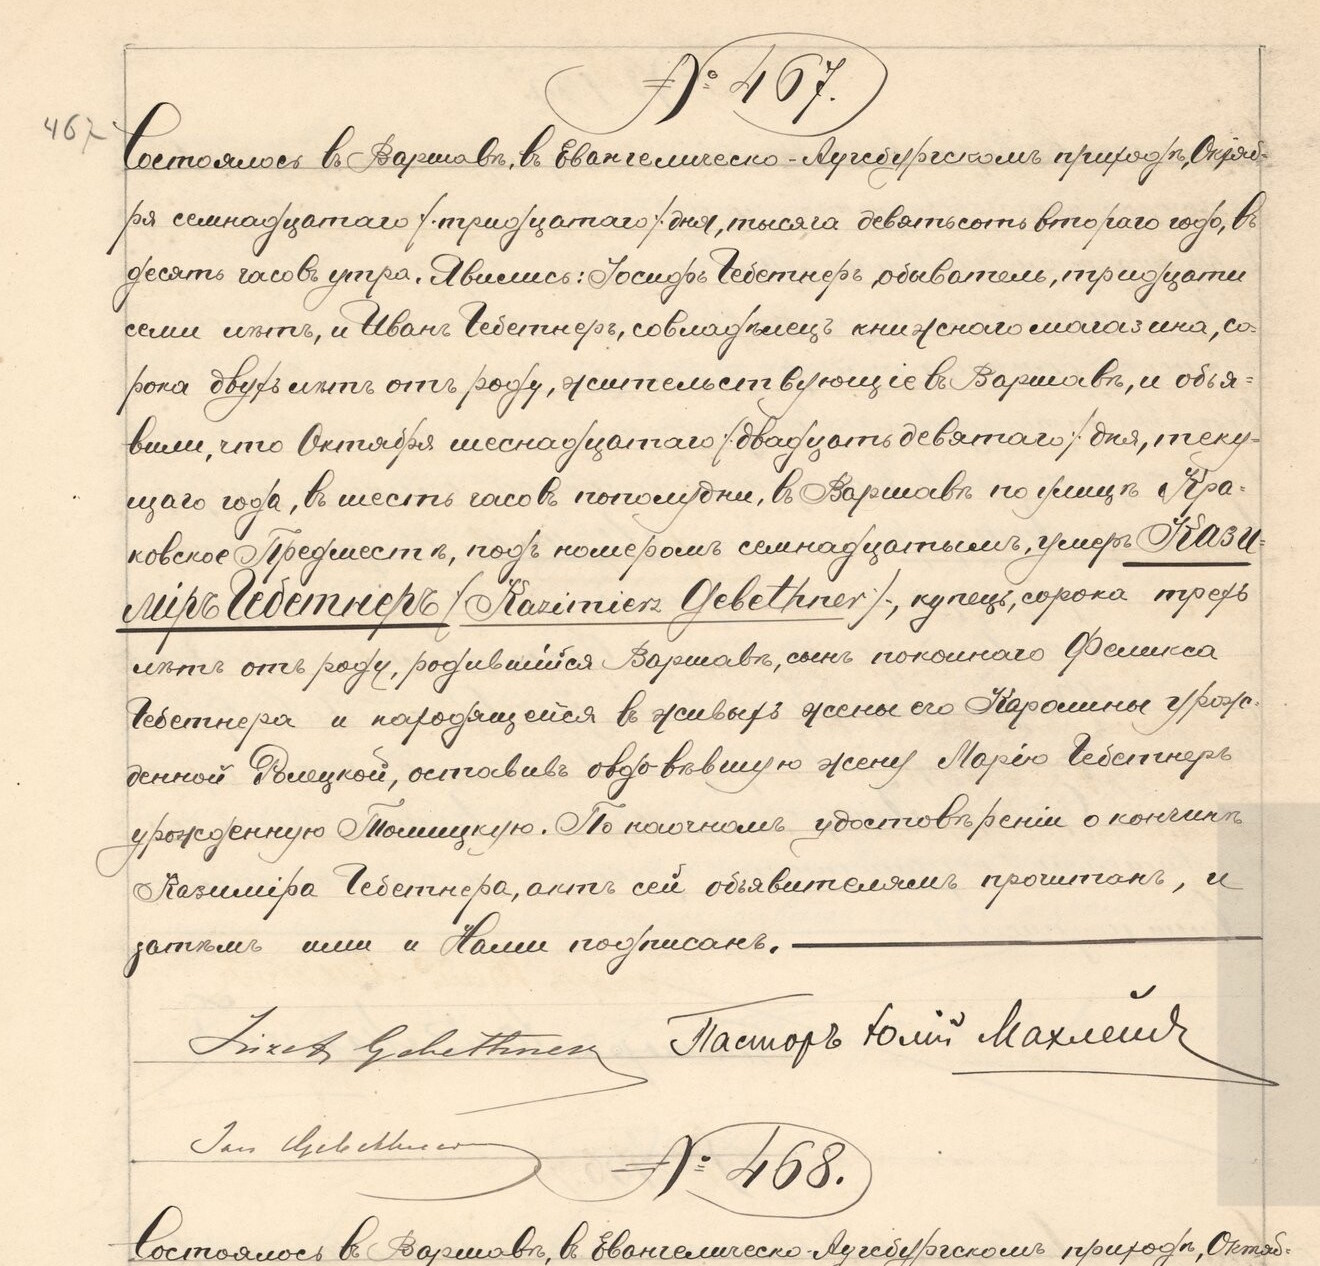 № 467.
467
Состоялось въ Варшавѣ, въ Евангелическо-Аугсбургскомъ приходѣ, Октяб-
ря семнадцатаго /.тридцатаго/. дня, тысяча девятьсотъ втораго года, въ
десять часовъ утра. Явились: Іосифъ Гебетнеръ, обыватель, тридцати
семи лѣтъ, и Иванъ Гебетнеръ, совладѣлецъ книжнаго магазина, со-
рока двухъ лѣтъ отъ роду, жительствующіе въ Варшавѣ, и объя-
вили, что Октября шеснадцатаго /.двадцать девятаго/. дня, теку-
щаго года, въ шесть часовъ пополудни, въ Варшавѣ по улицѣ Кра-
ковское Предместѣ, подъ номеромъ семнадцатымъ, умеръ Кази-
міръ Гебетнеръ /Kazimierz Gebethner/., купецъ, сорока трехъ
лѣтъ отъ роду, родившійся Варшавѣ, сынъ покоинаго Феликса
Гебетнера и находящейся въ живыхъ жены его Каролины урож-
денной Рлецкой, оставивъ овдовѣвшую жену Марію Гебетнеръ
урожденную Томицкую. По наочномъ удостовѣреніи о кончинѣ
Казиміра Гебетнера, актъ сей объявителямъ прочитанъ, и
затѣмъ ими и Нами подписанъ.
Józef Gebethner Пасторъ Юлій Махлейдъ
Jan Gebethner
№ 468.
Состоялось въ Варшавѣ, въ Евангелическо-Аугсбургскомъ приходѣ, Октяб-